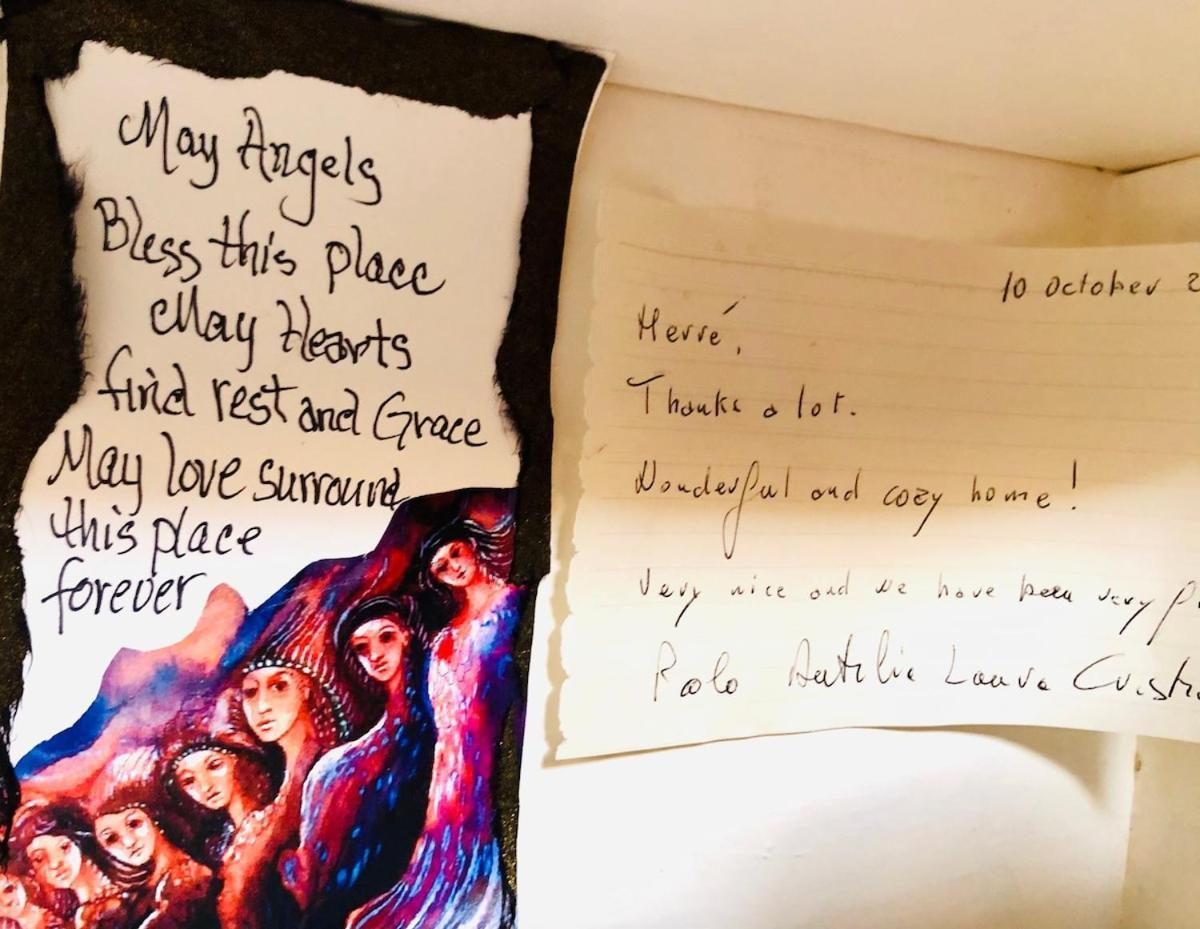 May Angels
Bless this place
May Hearts
find rest and Grace
May love surround
this place
forever
10 October 2
Hervé,
Thanks a lot.
Wonderful and cozy home!
Very nice and we have been very
Paolo Laura